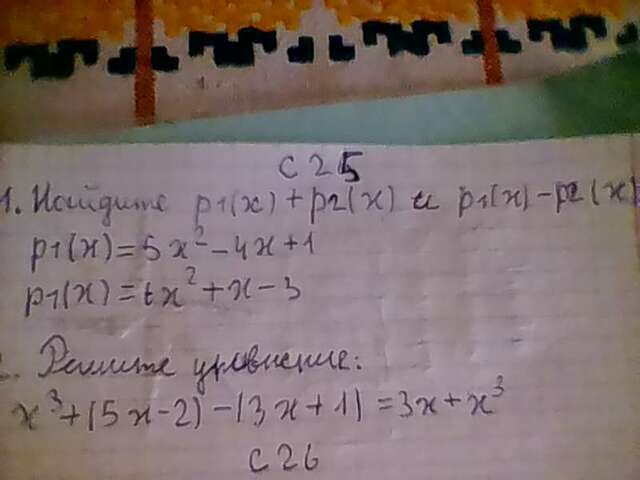 С 25
1. Найдите p1(x) + p2(x) и p1(x) - p2(x)
p1(x) = 5x² - 4x + 1
p1(x) = tx² + x - 3
Решите уравнение:
x³ + (5x - 2) - (3x + 1) = 3x + x³
С 26